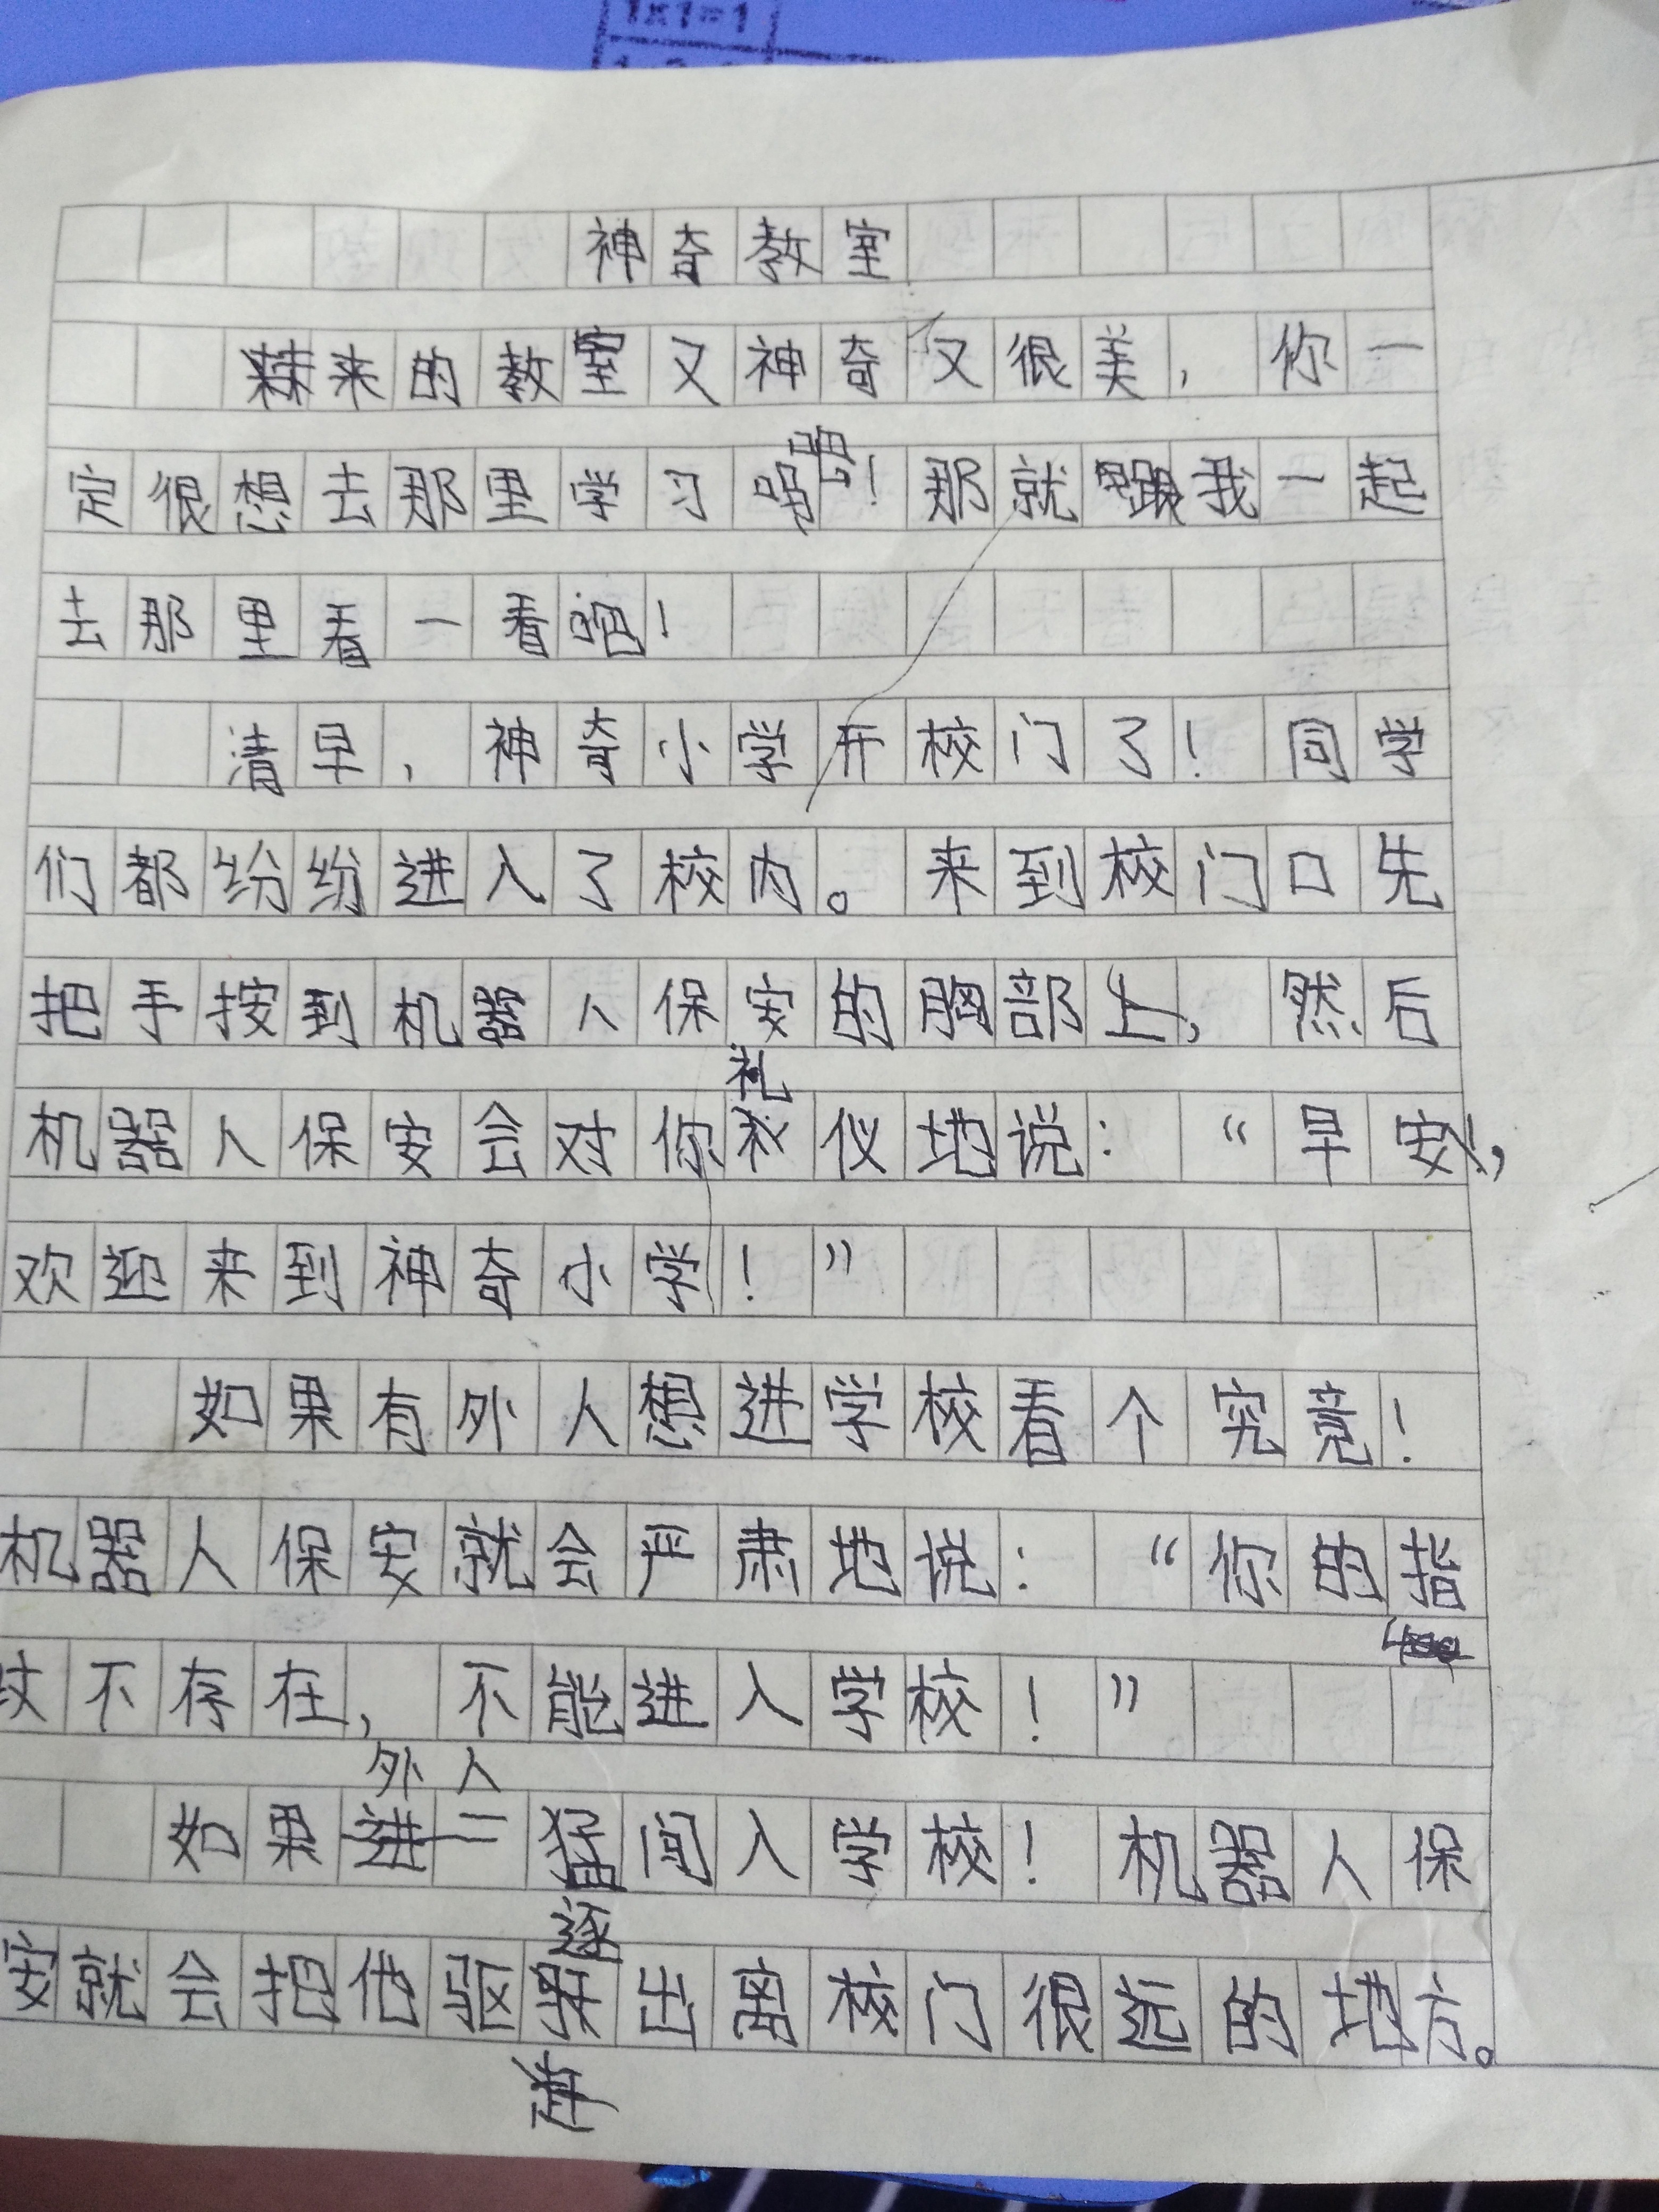 1x1=1
神奇教室
来的教室又神奇又很美，你一
定很想去那里学习吧！那就跟我一起
去那里看一看吧！
清早，神奇小学开校门了！同学
们都纷纷进入了校内。来到校门口先
把手按到机器人保安的胸部上，然后
机器人保安会对你礼仪地说：“早安，
欢迎来到神奇小学！”
如果有外人想进学校看个究竟！
机器人保安就会严肃地说：“你的指
纹不存在，不能进入学校！”
如果外人猛闯入学校！机器人保
安就会把他驱逐出离校门很远的地方。